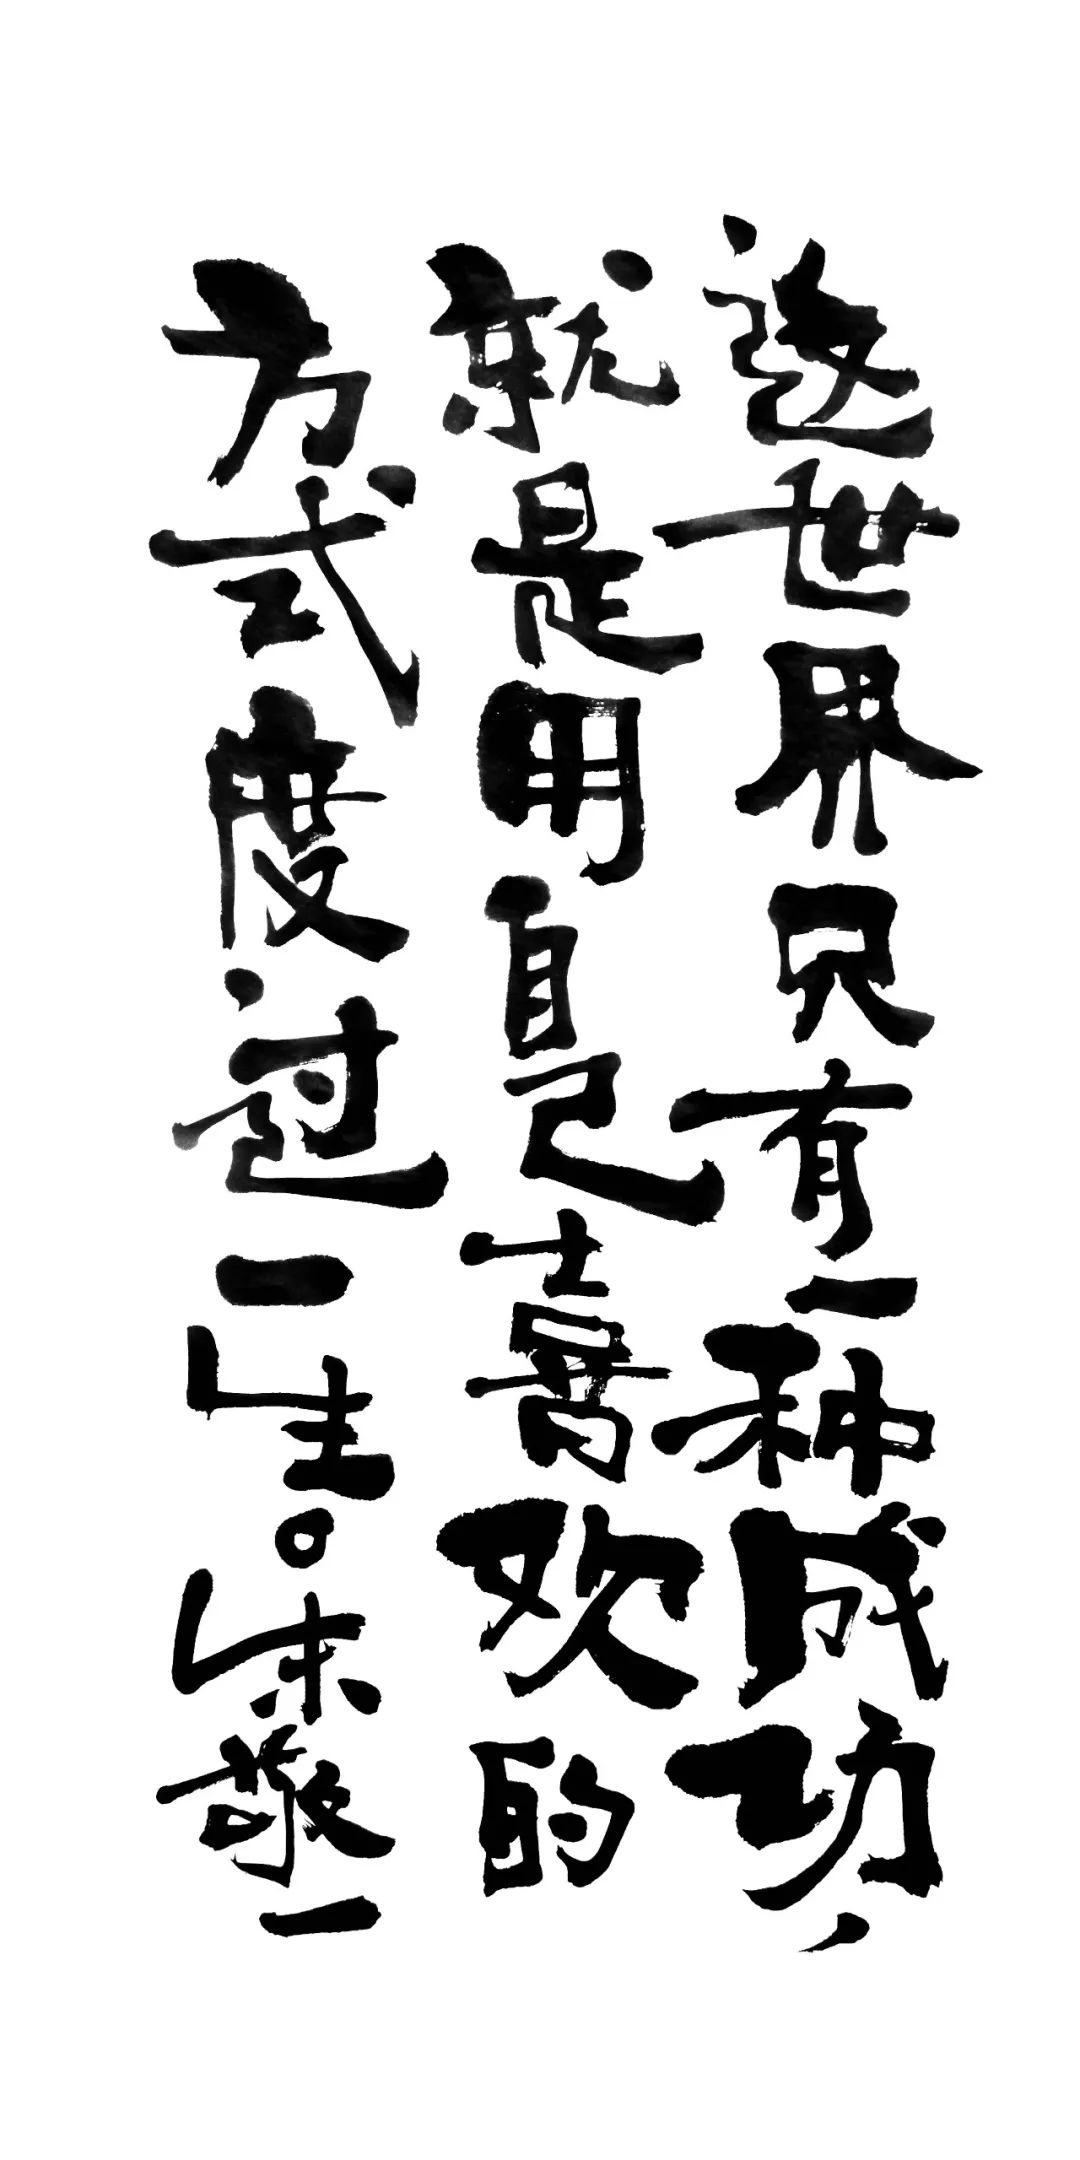 这世界只有一种成功，
就是用自己喜欢的
方式度过一生。朱敬一